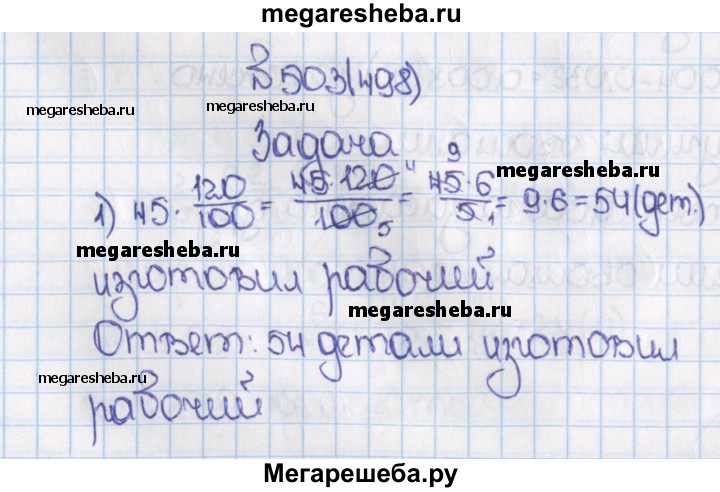 megaresheba.ru
В 503(498)
megaresheba.ru
megaresheba.ru
Задача
1) 45 · 120/100 = 45·120/100 5 = 9 45·6/5 1 = 9·6 = 54(дет.)
megaresheba.ru
megaresheba.ru
изготовил рабочий
megaresheba.ru
Ответ: 54 детали изготовил
megaresheba.ru
рабочий
Мегарешеба.ру